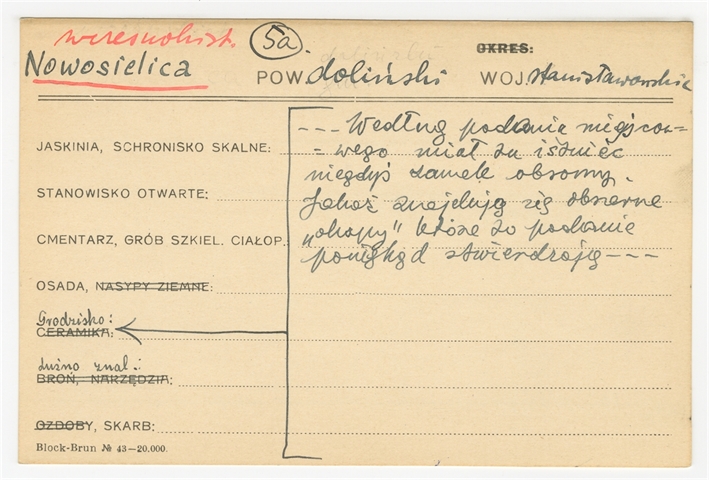 wczesnohist. 5a. OKRES:
Nowosielica POW. doliński WOJ. stanisławowskie
JASKINIA, SCHRONISKO SKALNE:
STANOWISKO OTWARTE:
CMENTARZ, GRÓB SZKIEL. CIAŁOP.:
OSADA, NASYPY ZIEMNE:
Grodzisko:
CERAMIKA:
Luźno znal.:
BROŃ, NARZĘDZIA:
OZDOBY, SKARB:
Block-Brun № 43—20.000.
--- Według podania miejsco=
= wego miał tu istnieć
niegdyś zamek obronny.
Jakoż znajdują się obszerne
„okopy" które to podanie
poniekąd stwierdzają ---